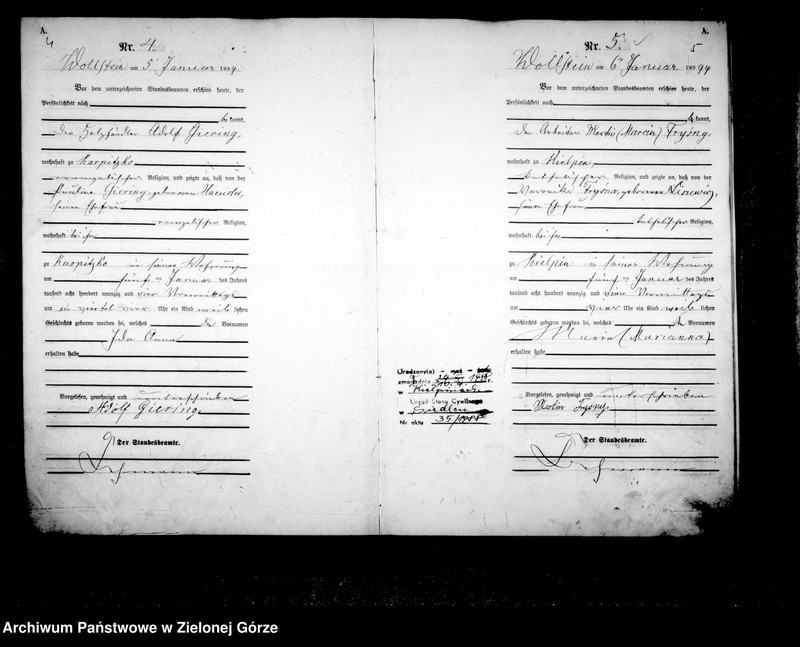 A.
4
Nr. 4.
Wollstein am 5 Januar 1894.
Vor dem unterzeichneten Standesbeamten erschien heute, der
Persönlichkeit nach
be kannt,
Der Adolf Giering,
wohnhaft zu Karpitzko
evangelischer Religion, und zeigte an, daß von der
Pauline Giering, geborenen
seiner Ehefrau
evangelischer Religion,
wohnhaft bei ihm
zu Karpitzko in seiner Wohnung
am fünf ten Januar des Jahres
tausend acht hundert neunzig und vier Vormittags
um ein viertel vier Uhr ein Kind weib lichen
Geschlechts geboren worden sei, welches die Vornamen
Ida Anna
erhalten habe
Vorgelesen, genehmigt und unterschrieben
Adolf Giering.
Der Standesbeamte.
Lehmann
A.
5
Nr. 5.
Wollstein am 6 Januar 1894
Vor dem unterzeichneten Standesbeamten erschien heute, der
Persönlichkeit nach
be kannt,
Der Arbeiter Martin (Marcin) Frysny,
wohnhaft zu Kielpin,
katholischer Religion, und zeigte an, daß von der
Veronika Frysny, geborenen
seiner Ehefrau
katholischer Religion,
wohnhaft bei ihm
zu Kielpin in seiner Wohnung
am fünf ten Januar des Jahres
tausend acht hundert neunzig und vier Vormittags
um vier Uhr ein Kind weib lichen
Geschlechts geboren worden sei, welches die Vornamen
Marie (Marianna)
erhalten habe
Vorgelesen, genehmigt und unterschrieben
Martin Frysny.
Der Standesbeamte.
Lehmann
Urodzony(a)
zmarł(a) dnia r.
w
Urząd Stanu Cywilnego
w Siedlec
Nr aktu 35/1988
Archiwum Państwowe w Zielonej Górze